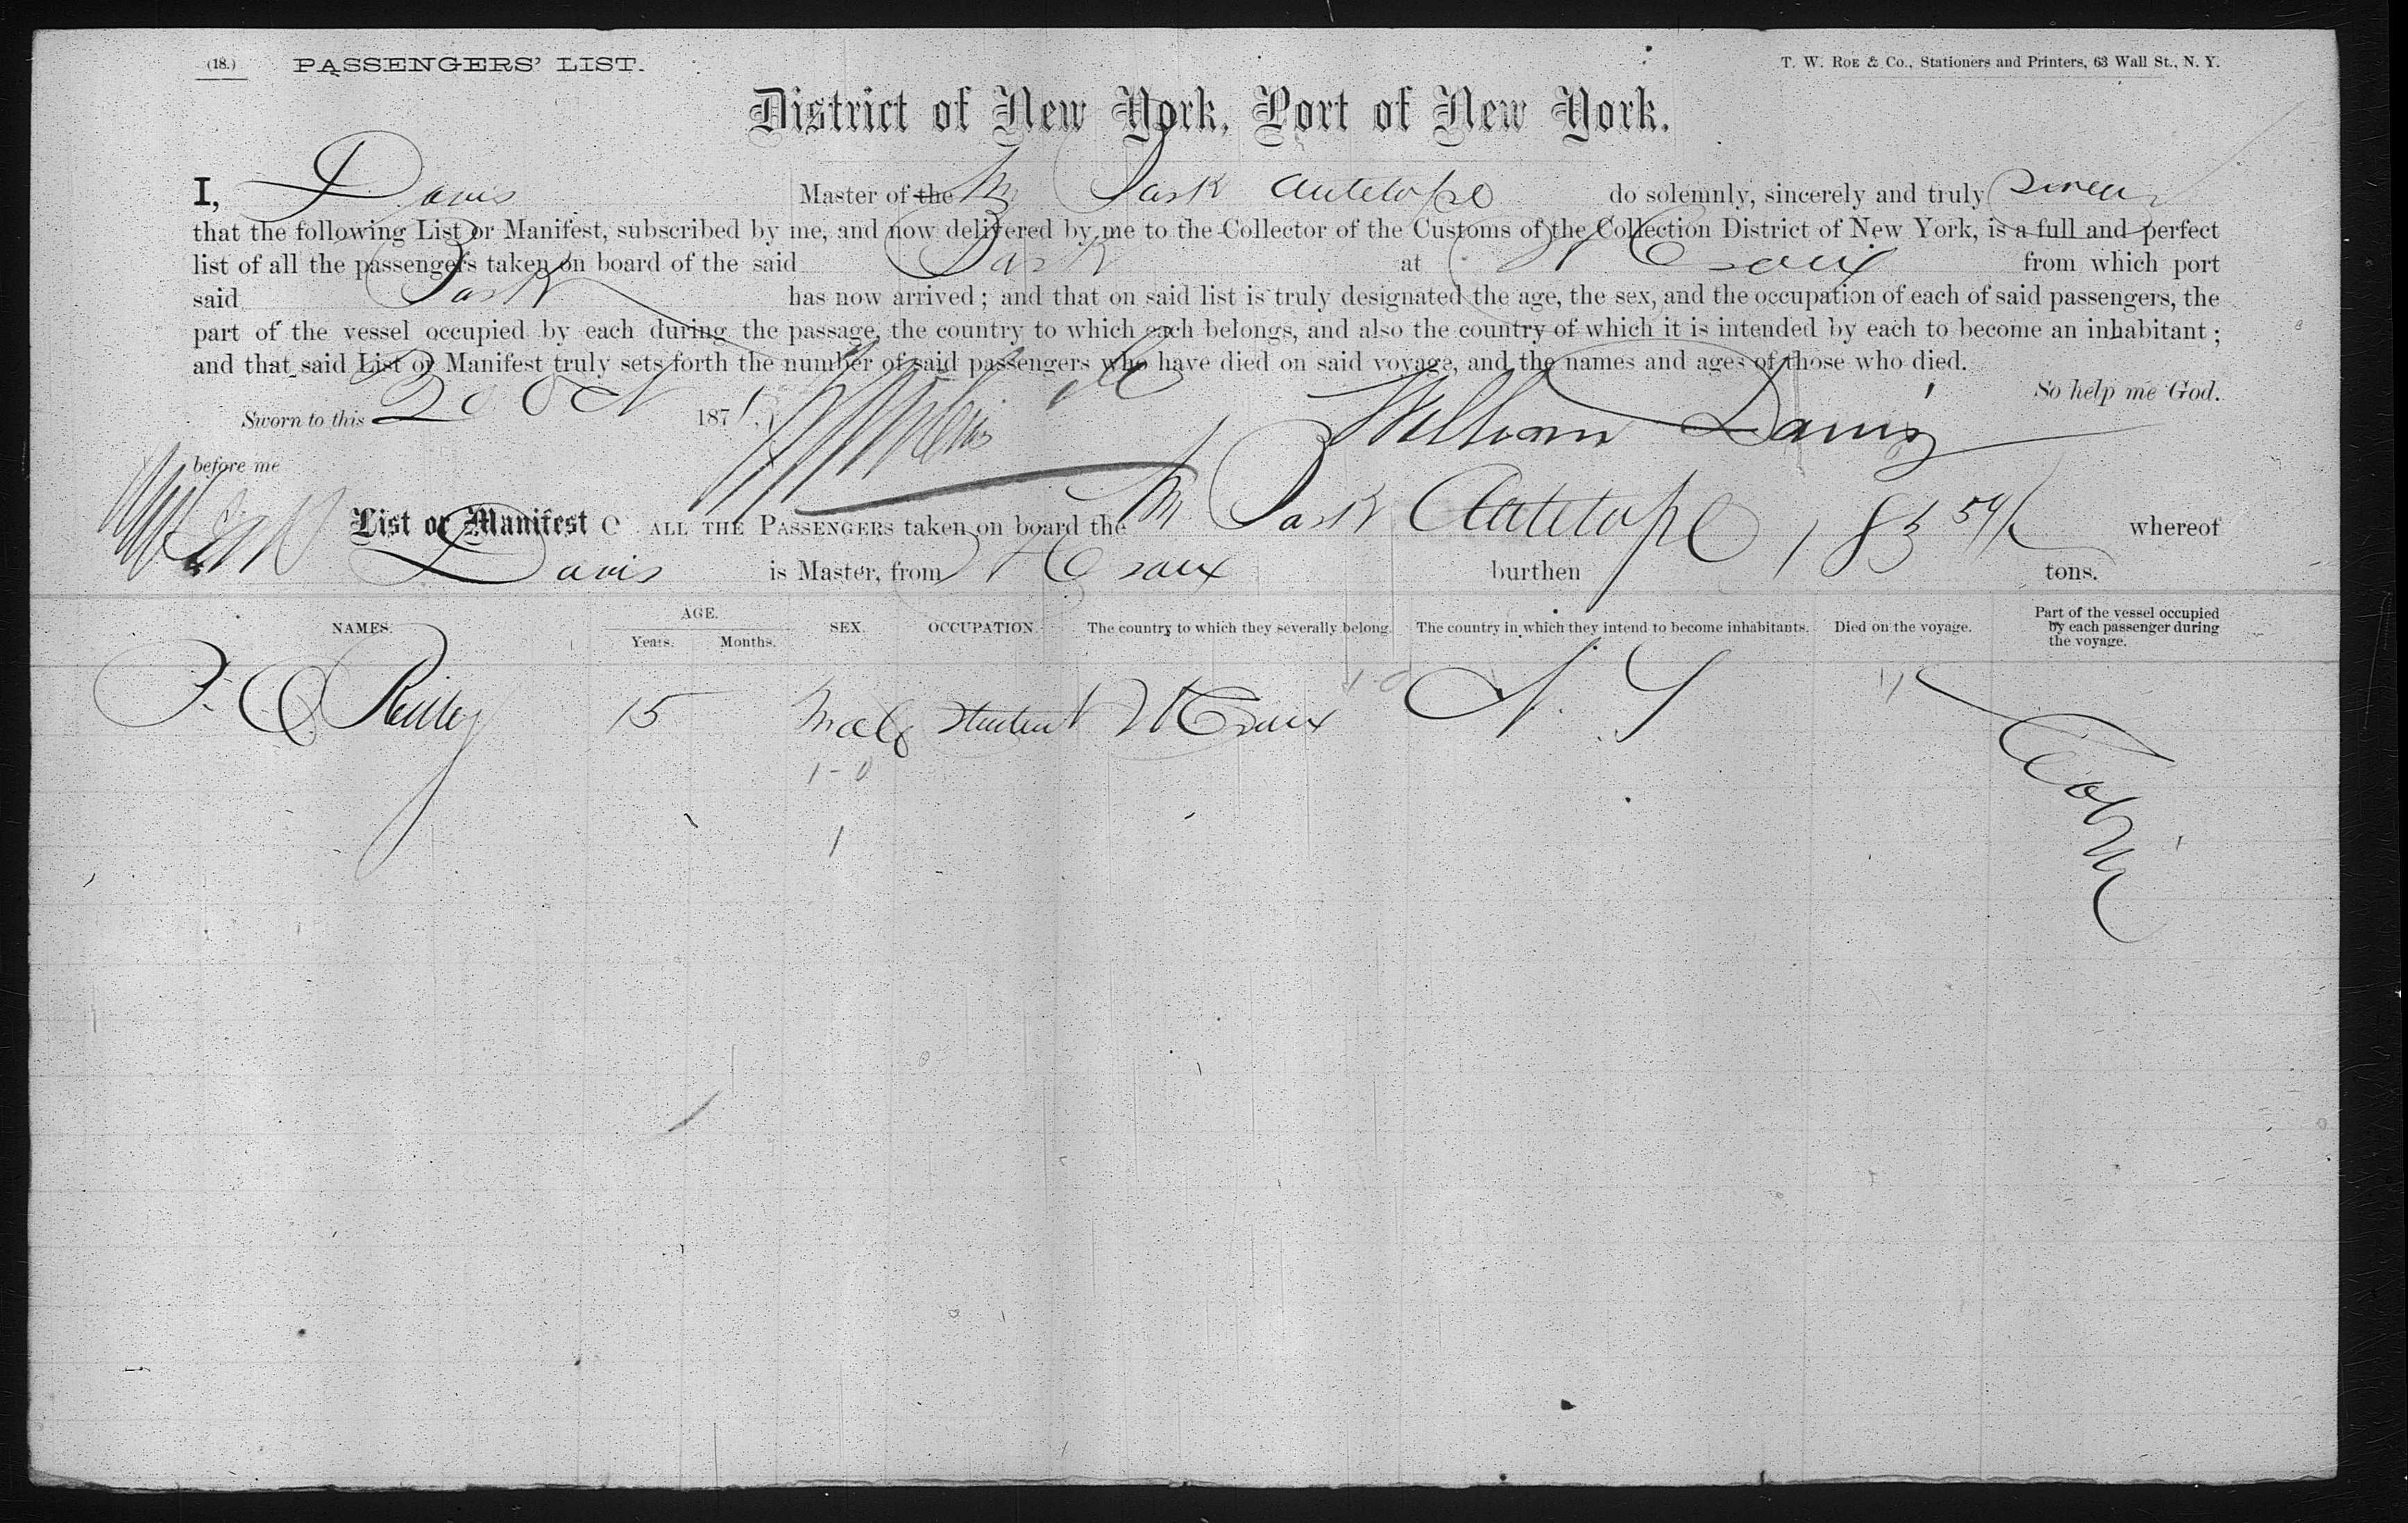 (18.) PASSENGERS' LIST. T. W. ROE & Co., Stationers and Printers, 63 Wall St., N. Y.
District of New York, Port of New York.
I, Davis Master of the Bark Antelope do solemnly, sincerely and truly swear
that the following List or Manifest, subscribed by me, and now delivered by me to the Collector of the Customs of the Collection District of New York, is a full and perfect
list of all the passengers taken on board of the said Bark at St Croix from which port
said Bark has now arrived; and that on said list is truly designated the age, the sex, and the occupation of each of said passengers, the
part of the vessel occupied by each during the passage, the country to which each belongs, and also the country of which it is intended by each to become an inhabitant;
and that said List or Manifest truly sets forth the number of said passengers who have died on said voyage, and the names and ages of those who died.
So help me God.
Sworn to this 20 Oct 187 William Davis
before me
List or Manifest O ALL THE PASSENGERS taken on board the Bark Antelope whereof
Davis is Master, from St Croix burthen 183 54/ tons.
NAMES. AGE. Years. Months. SEX. OCCUPATION. The country to which they severally belong. The country in which they intend to become inhabitants. Died on the voyage. Part of the vessel occupied by each passenger during the voyage.
Reilly 15 Male Student St Croix N. Y Cabin
1-0
1